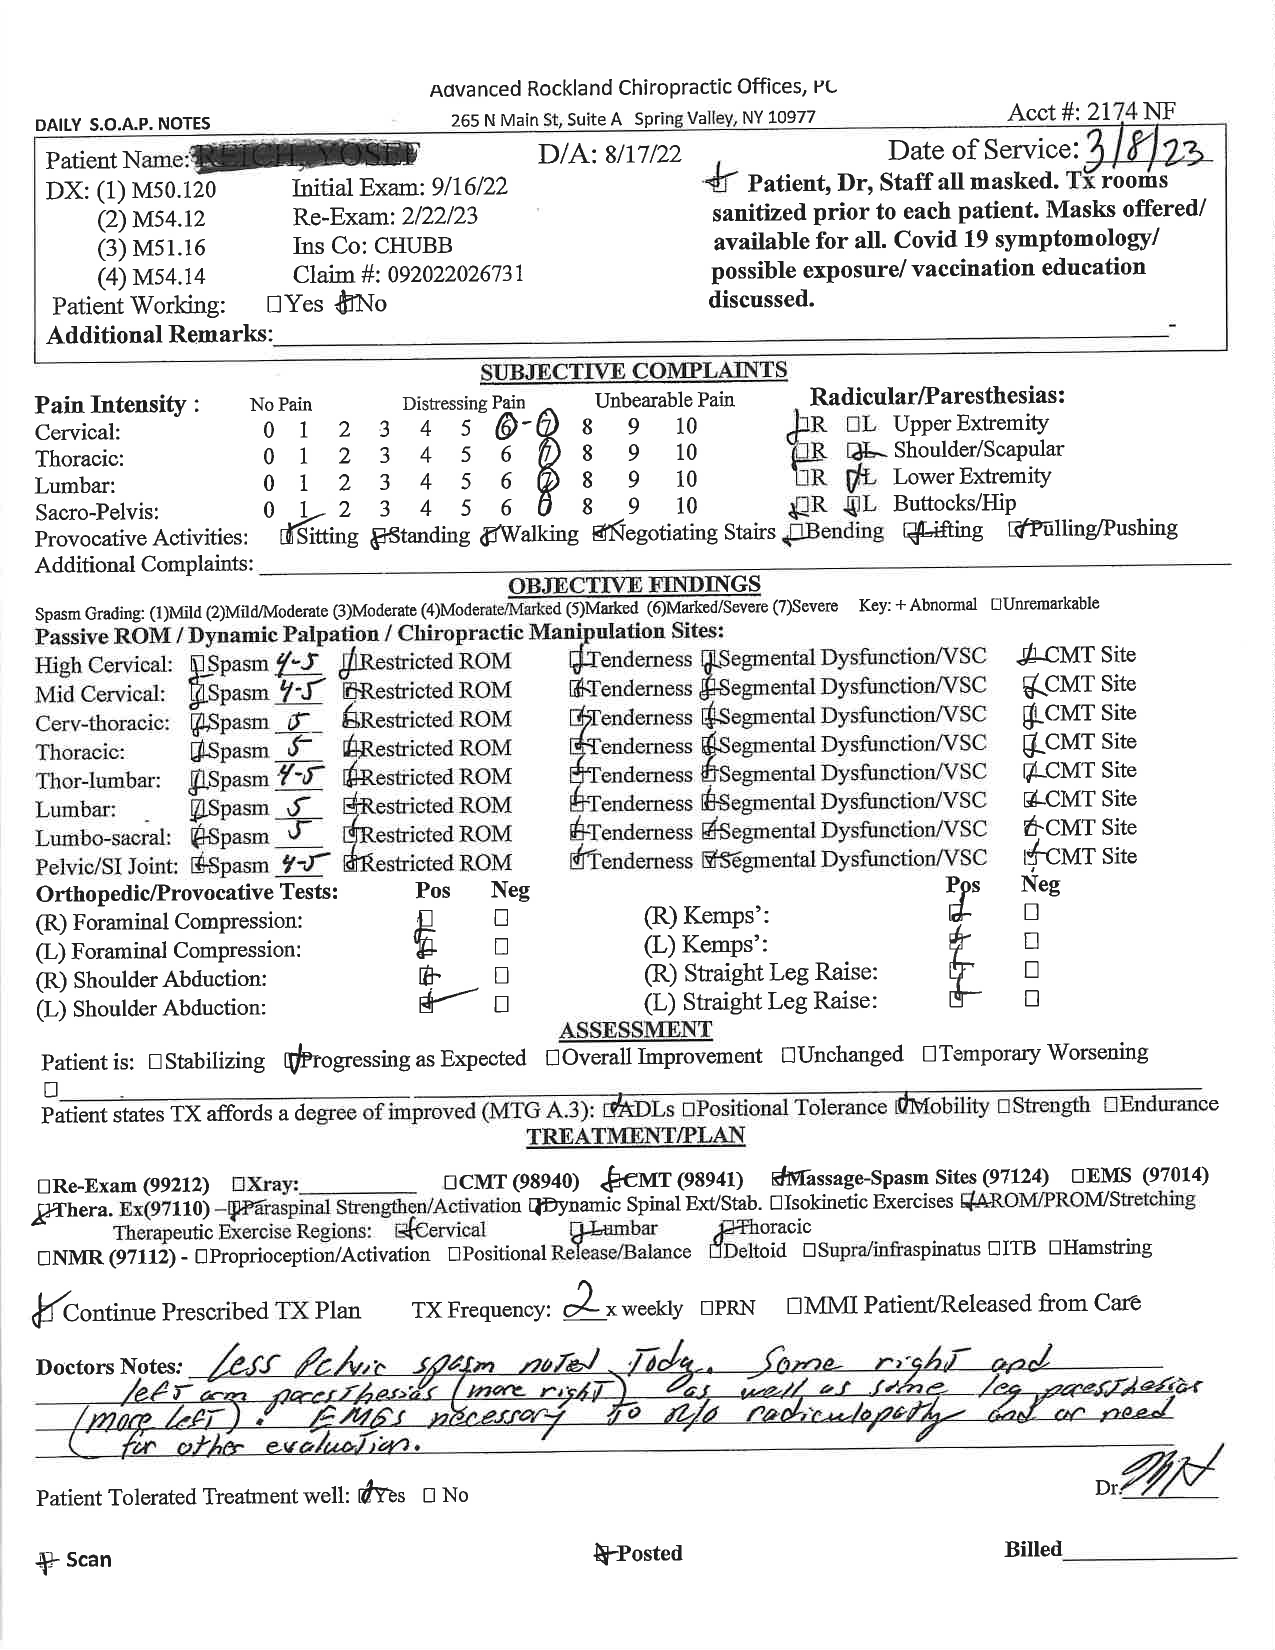 Advanced Rockland Chiropractic Offices, PC
DAILY S.O.A.P. NOTES 265 N Main St, Suite A Spring Valley, NY 10977 Acct #: 2174 NF
Patient Name: D/A: 8/17/22 Date of Service: 3/8/23
DX: (1) M50.120 Initial Exam: 9/16/22 Patient, Dr, Staff all masked. Tx rooms
(2) M54.12 Re-Exam: 2/22/23 sanitized prior to each patient. Masks offered/
(3) M51.16 Ins Co: CHUBB available for all. Covid 19 symptomology/
(4) M54.14 Claim #: 092022026731 possible exposure/ vaccination education
Patient Working: ☐Yes ☑No discussed.
Additional Remarks:
SUBJECTIVE COMPLAINTS
Pain Intensity : No Pain Distressing Pain Unbearable Pain Radicular/Paresthesias:
Cervical: 0 1 2 3 4 5 6-7 8 9 10 ☑R ☐L Upper Extremity
Thoracic: 0 1 2 3 4 5 6 7 8 9 10 ☑R ☑L Shoulder/Scapular
Lumbar: 0 1 2 3 4 5 6 7 8 9 10 ☐R ☑L Lower Extremity
Sacro-Pelvis: 0 1 2 3 4 5 6 7 8 9 10 ☑R ☑L Buttocks/Hip
Provocative Activities: ☑Sitting ☑Standing ☑Walking ☑Negotiating Stairs ☑Bending ☑Lifting ☑Pulling/Pushing
Additional Complaints:
OBJECTIVE FINDINGS
Spasm Grading: (1)Mild (2)Mild/Moderate (3)Moderate (4)Moderate/Marked (5)Marked (6)Marked/Severe (7)Severe Key: + Abnormal ☐Unremarkable
Passive ROM / Dynamic Palpation / Chiropractic Manipulation Sites:
High Cervical: ☑Spasm 4-5 ☑Restricted ROM ☑Tenderness ☑Segmental Dysfunction/VSC ☑CMT Site
Mid Cervical: ☑Spasm 4-5 ☑Restricted ROM ☑Tenderness ☑Segmental Dysfunction/VSC ☑CMT Site
Cerv-thoracic: ☑Spasm 5 ☑Restricted ROM ☑Tenderness ☑Segmental Dysfunction/VSC ☑CMT Site
Thoracic: ☑Spasm 5 ☑Restricted ROM ☑Tenderness ☑Segmental Dysfunction/VSC ☑CMT Site
Thor-lumbar: ☑Spasm 4-5 ☑Restricted ROM ☑Tenderness ☑Segmental Dysfunction/VSC ☑CMT Site
Lumbar: ☑Spasm 5 ☑Restricted ROM ☑Tenderness ☑Segmental Dysfunction/VSC ☑CMT Site
Lumbo-sacral: ☑Spasm 5 ☑Restricted ROM ☑Tenderness ☑Segmental Dysfunction/VSC ☑CMT Site
Pelvic/SI Joint: ☑Spasm 4-5 ☑Restricted ROM ☑Tenderness ☑Segmental Dysfunction/VSC ☑CMT Site
Orthopedic/Provocative Tests: Pos Neg Pos Neg
(R) Foraminal Compression: ☑ ☐ (R) Kemps': ☑ ☐
(L) Foraminal Compression: ☑ ☐ (L) Kemps': ☑ ☐
(R) Shoulder Abduction: ☑ ☐ (R) Straight Leg Raise: ☑ ☐
(L) Shoulder Abduction: ☑ ☐ (L) Straight Leg Raise: ☑ ☐
ASSESSMENT
Patient is: ☐Stabilizing ☑Progressing as Expected ☐Overall Improvement ☐Unchanged ☐Temporary Worsening
☐
Patient states TX affords a degree of improved (MTG A.3): ☑ADLs ☐Positional Tolerance ☑Mobility ☐Strength ☐Endurance
TREATMENT/PLAN
☐Re-Exam (99212) ☐Xray: ☐CMT (98940) ☑CMT (98941) ☑Massage-Spasm Sites (97124) ☐EMS (97014)
☑Thera. Ex(97110) – ☑Paraspinal Strengthen/Activation ☑Dynamic Spinal Ext/Stab. ☐Isokinetic Exercises ☑AROM/PROM/Stretching
Therapeutic Exercise Regions: ☑Cervical ☑Lumbar ☑Thoracic
☐NMR (97112) - ☐Proprioception/Activation ☐Positional Release/Balance ☐Deltoid ☐Supra/infraspinatus ☐ITB ☐Hamstring
☑Continue Prescribed TX Plan TX Frequency: 2 x weekly ☐PRN ☐MMI Patient/Released from Care
Doctors Notes: Less Pelvic spasm noted Today. Some right and
left arm paresthesias (more right) as well as some leg paresthesias
(more left). EMGs necessary to R/o radiculopathy and or need
for other evaluation.
Patient Tolerated Treatment well: ☑Yes ☐ No Dr.
☑ Scan ☑Posted Billed